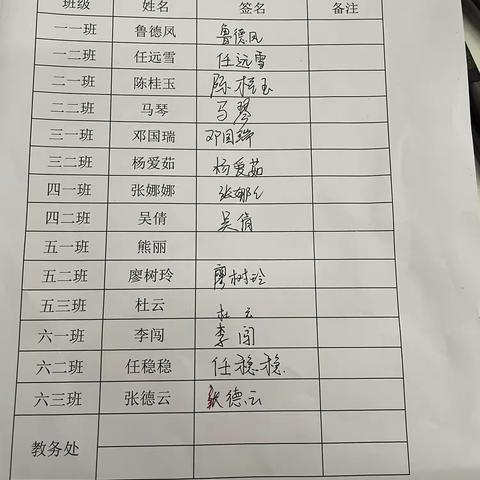 班级 姓名 签名 备注
一一班 鲁德凤 鲁德凤
一二班 任远雪 任远雪
二一班 陈桂玉 陈桂玉
二二班 马琴 马琴
三一班 邓国瑞 邓国瑞
三二班 杨爱茹 杨爱茹
四一班 张娜娜 张娜娜
四二班 吴倩 吴倩
五一班 熊丽
五二班 廖树玲 廖树玲
五三班 杜云 杜云
六一班 李闯 李闯
六二班 任稳稳 任稳稳
六三班 张德云 张德云
教务处